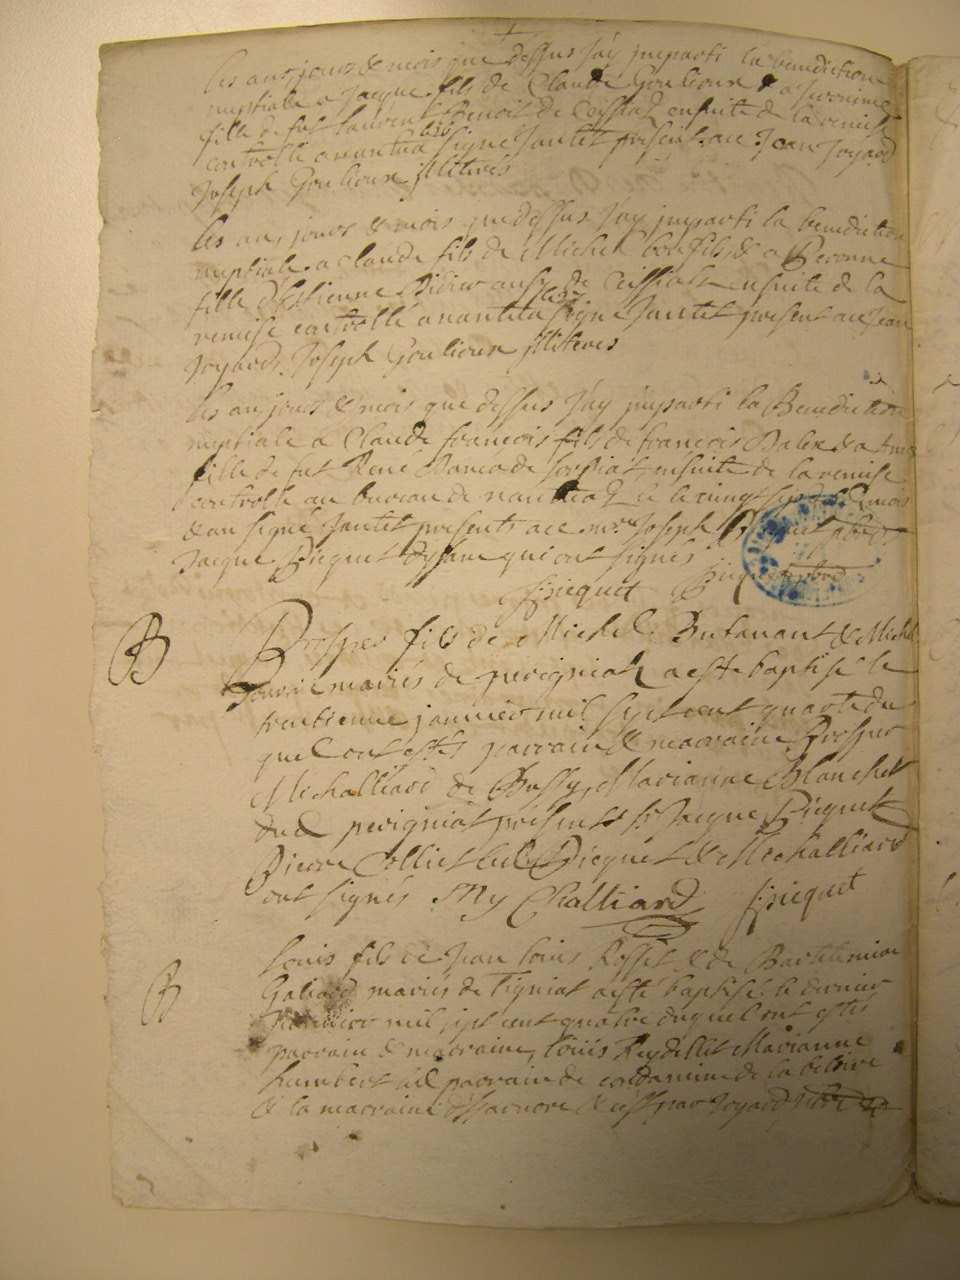 les ans, jours & mois que dessus J'ay imparti la benediction
nuptiale a Jacque fils de Claude Goulioux & a
fille de fut Laurent Benoit de ensuite de la remise
controlle a nantua signe Jantet present ace Jean Joyard
Joseph Goulioux illiterés
les ans, jours & mois que dessus J'ay imparti la benediction
nuptiale a Claude fils de Michel & a Peronne
fille d'Estienne Didier aussy de Ceissiat ensuite de la
remise controllé a nantua signe Jantet present ace Jean
Joyard, Joseph Goulioux illiterés
les ans jours & mois que dessus J'ay imparti la Benediction
nuptiale a Claude françois fils de françois & a
fille de fut René de ensuite de la remise
controlle au bureau de nantua le vingt sept du mois
& an signé Jantet presents ace mre Joseph Picquet
Jacque Picquet qui ont signés
Picquet
B Prosper fils de Michel & Michel
mariés de perigniat a esté baptisé le
trentienne janvier mil sept cent quatre du
quel ont estés parrain & marraine Prosper
Michalliard de Bussy, Marianne Blanchet
dud perigniat presents sr Jacque Picquet
Pierre Colliet led Picquet & Michalliard
ont signés. My Challiard Picquet
B Louis fils de Jean Louis Rosset & de
mariés de Tigniat a esté baptisé le dernier
Janvier mil sept cent quatre duquel ont estés
parrain & marraine, Louis Reydellet Marianne
humbert led parrain de condamine de la
& la marraine & par Joyard